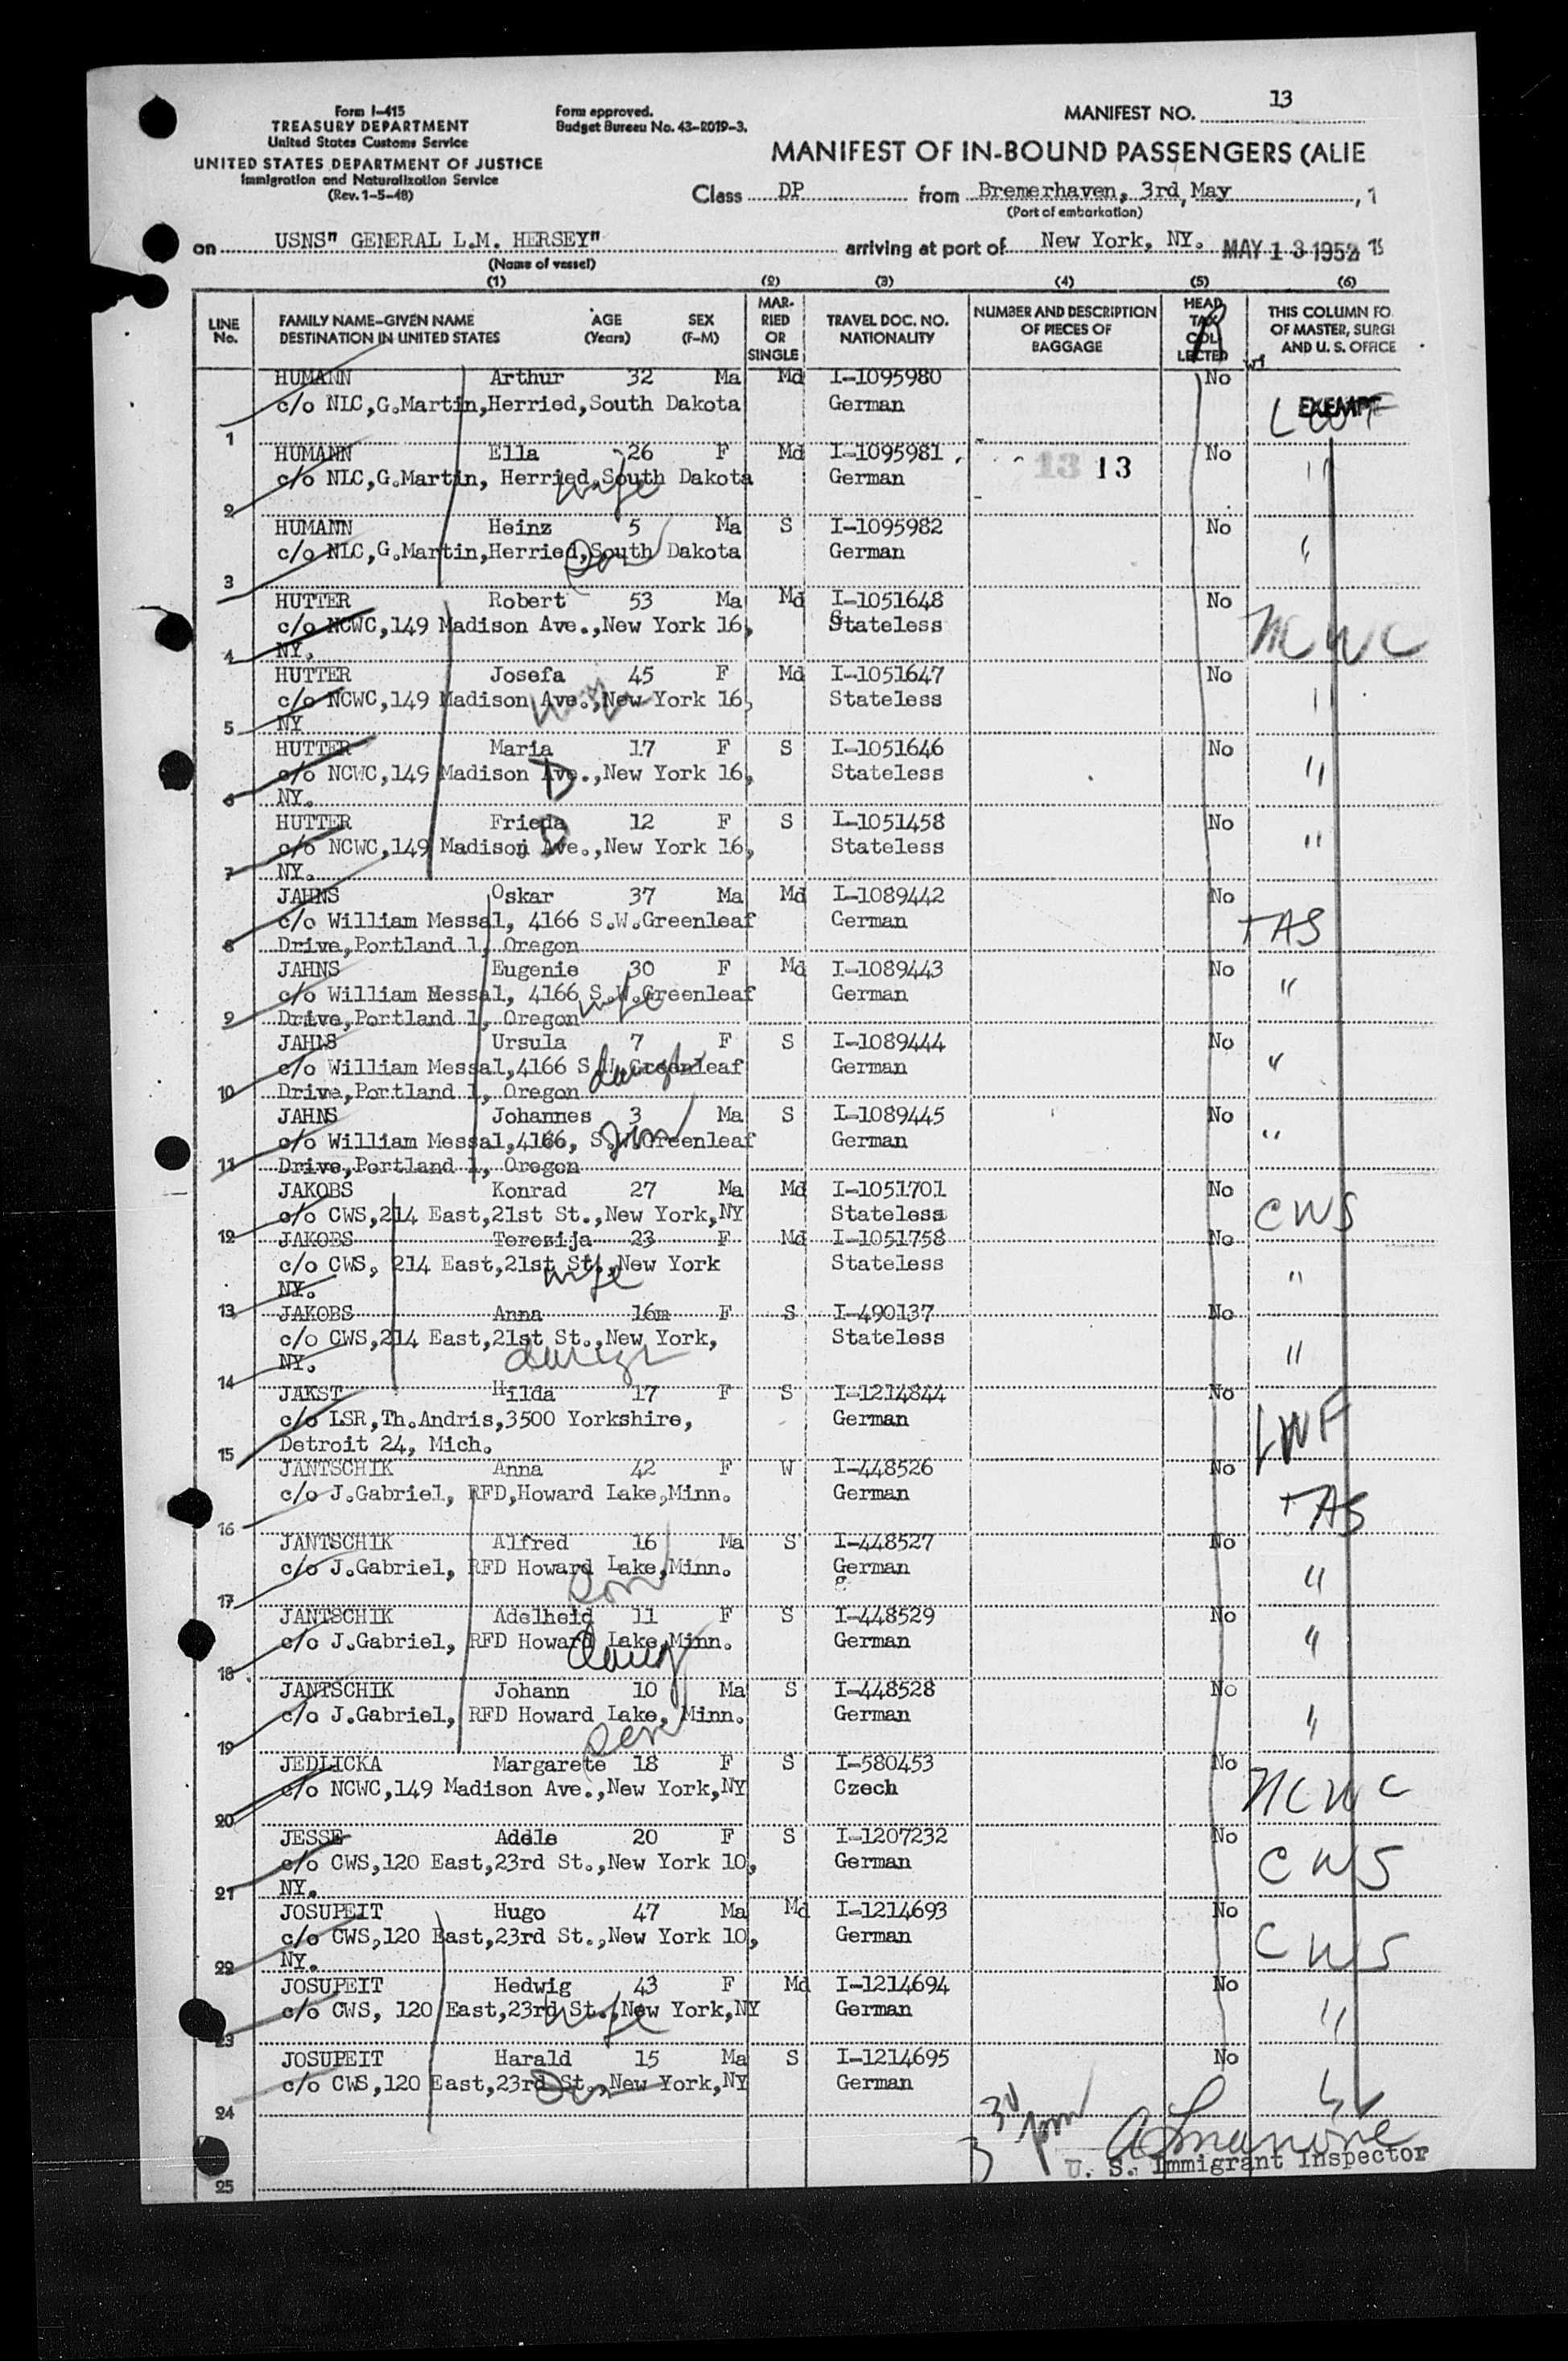 Form I-415
TREASURY DEPARTMENT
United States Customs Service
UNITED STATES DEPARTMENT OF JUSTICE
Immigration and Naturalization Service
(Rev. 1-5-48)
Form approved.
Budget Bureau No. 43-R019-3.
MANIFEST NO. 13
MANIFEST OF IN-BOUND PASSENGERS (ALIE
Class DP from Bremerhaven, 3rd, May, 1
(Port of embarkation)
on USNS" GENERAL L.M. HERSEY" arriving at port of New York, NY. MAY 13 1952 19
(Name of vessel)
(1) (2) (3) (4) (5) (6)
LINE No.
FAMILY NAME—GIVEN NAME AGE SEX
DESTINATION IN UNITED STATES (Years) (F-M)
MARRIED OR SINGLE
TRAVEL DOC. NO. NATIONALITY
NUMBER AND DESCRIPTION OF PIECES OF BAGGAGE
HEAD TAX COLLECTED
THIS COLUMN FO
OF MASTER, SURGE
AND U. S. OFFICE
HUMANN Arthur 32 Ma Md I-1095980 No
c/o NLC,G.Martin,Herried,South Dakota German EXEMPT LWF
1
HUMANN Ella 26 F Md I-1095981 13 13 No "
c/o NLC,G.Martin, Herried,South Dakota German
wife
2
HUMANN Heinz 5 Ma S I-1095982 No "
c/o NLC,G.Martin,Herried,South Dakota German
Son
3
HUTTER Robert 53 Ma Md I-1051648 No
c/o NCWC,149 Madison Ave.,New York 16, Stateless NCWC
4 NY.
HUTTER Josefa 45 F Md I-1051647 No
c/o NCWC,149 Madison Ave.,New York 16, Stateless "
wife
5 NY
HUTTER Maria 17 F S I-1051646 No
c/o NCWC,149 Madison Ave.,New York 16, Stateless "
D
6 NY.
HUTTER Frieda 12 F S I-1051458 No
c/o NCWC,149 Madison Ave.,New York 16, Stateless "
D
7 NY.
JAHNS Oskar 37 Ma Md I-1089442 No
c/o William Messal, 4166 S.W.Greenleaf German TAS
8 Drive,Portland 1, Oregon
JAHNS Eugenie 30 F Md I-1089443 No
c/o William Messal, 4166 S.W.Greenleaf German "
wife
9 Drive,Portland 1, Oregon
JAHNS Ursula 7 F S I-1089444 No
c/o William Messal,4166 S.W.Greenleaf German "
daugh
10 Drive,Portland 1, Oregon
JAHNS Johannes 3 Ma S I-1089445 No
c/o William Messal,4166, S.W.Greenleaf German "
son
11 Drive,Portland 1, Oregon
JAKOBS Konrad 27 Ma Md I-1051701 No
c/o CWS,214 East,21st St.,New York,NY Stateless CWS
12
JAKOBS Terezija 23 F Md I-1051758 No
c/o CWS, 214 East,21st St.,New York Stateless "
wife
NY.
13
JAKOBS Anna 16m F S I-490137 No
c/o CWS,214 East,21st St.,New York, Stateless "
daugr
NY.
14
JAKST Hilda 17 F S I-1214844 No
c/o LSR,Th.Andris,3500 Yorkshire, German LWF
15 Detroit 24, Mich.
JANTSCHIK Anna 42 F W I-448526 No
c/o J.Gabriel, RFD,Howard Lake,Minn. German TAS
16
JANTSCHIK Alfred 16 Ma S I-448527 No
c/o J.Gabriel, RFD Howard Lake,Minn. German "
son
17
JANTSCHIK Adelheid 11 F S I-448529 No
c/o J.Gabriel, RFD Howard Lake,Minn. German "
daug
18
JANTSCHIK Johann 10 Ma S I-448528 No
c/o J.Gabriel, RFD Howard Lake, Minn. German "
son
19
JEDLICKA Margarete 18 F S I-580453 No
c/o NCWC,149 Madison Ave.,New York,NY Czech NCWC
20
JESSE Adele 20 F S I-1207232 No
c/o CWS,120 East,23rd St.,New York 10, German CWS
21 NY.
JOSUPEIT Hugo 47 Ma Md I-1214693 No
c/o CWS,120 East,23rd St.,New York 10, German CWS
22 NY.
JOSUPEIT Hedwig 43 F Md I-1214694 No
c/o CWS, 120 East,23rd St.,New York,NY German "
wife
23
JOSUPEIT Harald 15 Ma S I-1214695 No
c/o CWS,120 East,23rd St.,New York,NY German "
Son
24
3 30 pm
U. S. Immigrant Inspector
25